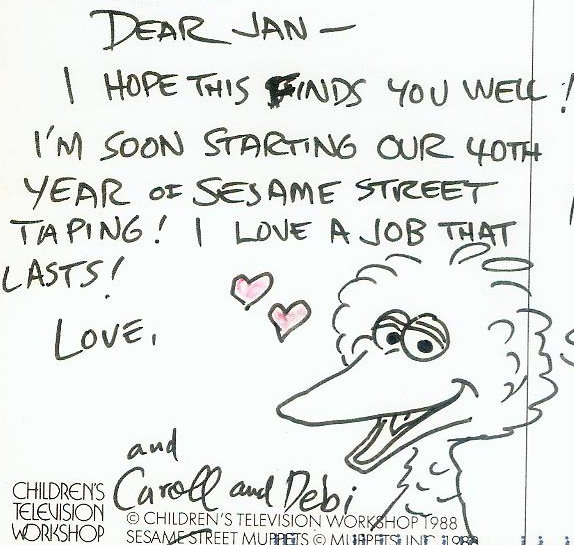 DEAR JAN —
I HOPE THIS FINDS YOU WELL!
I'M SOON STARTING OUR 40TH
YEAR OF SESAME STREET
TAPING! I LOVE A JOB THAT
LASTS!
LOVE,
and
Caroll and Debi
CHILDREN'S
TELEVISION
WORKSHOP
© CHILDREN'S TELEVISION WORKSHOP 1988
SESAME STREET MUPPETS © MUPPETS INC